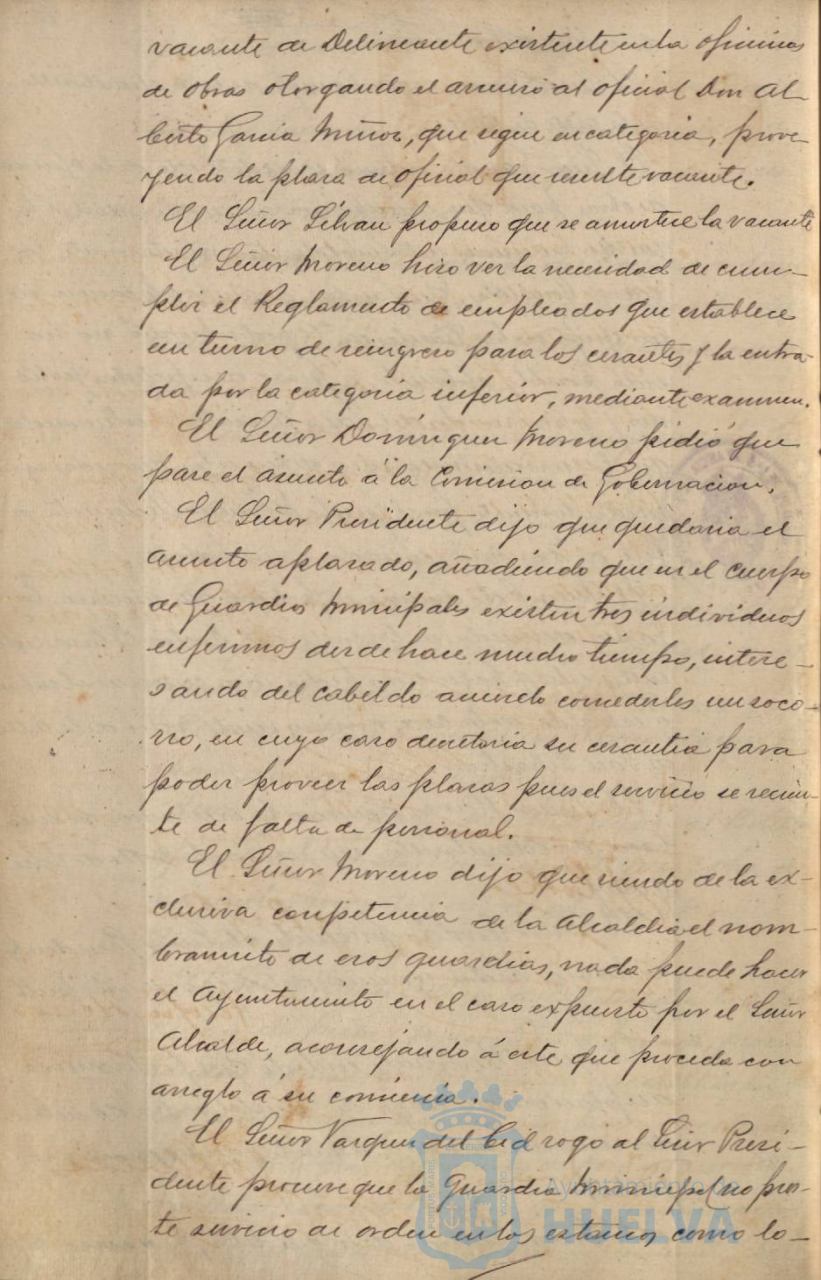 vacante de Delineante existente en la oficina
de obras otorgando el ascenso al oficial Don Al-
berto Garcia Muñoz, que sigue en categoria, prove-
yendo la plaza de oficial que resulte vacante.
El Señor Silvan propuso que se amortice la vacante
El Señor Moreno hizo ver la necesidad de cum-
plir el Reglamento de empleados que establece
un turno de reingreso para los cesantes y la entra-
da por la categoria inferior, mediante examen.
El Señor Dominguez Moreno pidió que
pase el asunto á la Comision de Gobernacion.
El Señor Presidente dijo que quedaria el
asunto aplazado, añadiendo que en el cuerpo
de Guardias Municipales existen tres individuos
enfermos desde hace mucho tiempo, intere-
sando del Cabildo acuerde concederles un soco-
rro, en cuyo caso decretaria su cesantia para
poder proveer las plazas pues el servicio se resien-
te de falta de personal.
El Señor Moreno dijo que siendo de la ex-
clusiva competencia de la Alcaldia el nom-
bramiento de esos guardias, nada puede hacer
el Ayuntamiento en el caso expuesto por el Señor
Alcalde, aconsejando á este que proceda con
arreglo á su conciencia.
El Señor Vazquez del Cid rogó al Señor Presi-
dente procure que la Guardia Municipal no pres-
te servicio de orden en los estancos como lo-
Ayuntamiento de
HUELVA